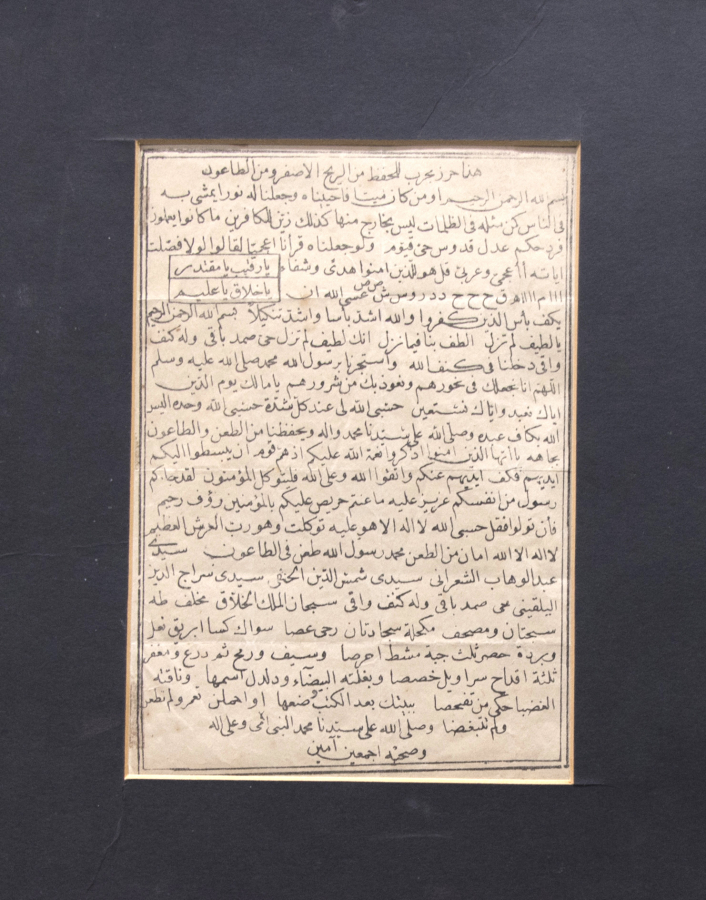 هذا حرز مجرب للحفظ من الريح الاصفر ومن الطاعون
بسم الله الرحمن الرحيم او من كان ميتا فاحييناه وجعلنا له نورا يمشى به
فى الناس كمن مثله فى الظلمات ليس بخارج منها كذلك زين للكافرين ما كانوا يعملون
فرد حكم عدل قدوس حى قيوم ولو جعلناه قرآنا اعجميا لقالوا لولا فصلت
اياته أأعجمى وعربى قل هو للذين امنوا هدى وشفاء يا رقيب يا مقتدر
الله ان يا خلاق يا عليم
يكف باس الذين كفروا والله اشد باسا واشد تنكيلا بسم الله الرحمن الرحيم
يا لطيف لم تزل الطف بنا فيما نزل انك لطيف لم تزل حى صمد باقى وله كنف
واقى دخلنا فى كنف الله واستجرنا برسول الله محمد صلى الله عليه وسلم
اللهم انا نجعلك فى نحورهم ونعوذ بك من شرورهم يا مالك يوم الدين
اياك نعبد واياك نستعين حسبى الله لى عند كل شدة حسبى الله وحده اليس
الله بكاف عبده وصلى الله على سيدنا محمد واله ويحفظنا من الطعن والطاعون
بجاهه يا ايها الذين امنوا اذكروا نعمة الله عليكم اذ هم قوم ان يبسطوا اليكم
ايديهم فكف ايديهم عنكم واتقوا الله وعلى الله فليتوكل المؤمنون لقد جاءكم
رسول من انفسكم عزيز عليه ما عنتم حريص عليكم بالمؤمنين رؤف رحيم
فان تولوا فقل حسبى الله لا اله الا هو عليه توكلت وهو رب العرش العظيم
لا اله الا الله امان من الطعن محمد رسول الله طعن فى الطاعون سيدى
عبد الوهاب الشعرانى سيدى شمس الدين الحنفى سيدى سراج الدين
البلقينى حى صمد باقى وله كنف واقى سبحان الملك الخلاق مخلف طه
سبحتان ومصحف مكحلة سجادتان رحى عصا سواك كسا ابريق نعل
وبردة حصر ثلث جبة مشط احرصا وسيف ورمح ثم درع ومغفر
ثلثة اقداح سراويل خصصا وبغلته البيضاء ودلدل اسمها وناقته
العضبا حكى من تفحصا ببيتك بعد الكتب وضعها
ولم تنبغضا وصلى الله على سيدنا محمد النبى الامى وعلى اله
وصحبه اجمعين آمين